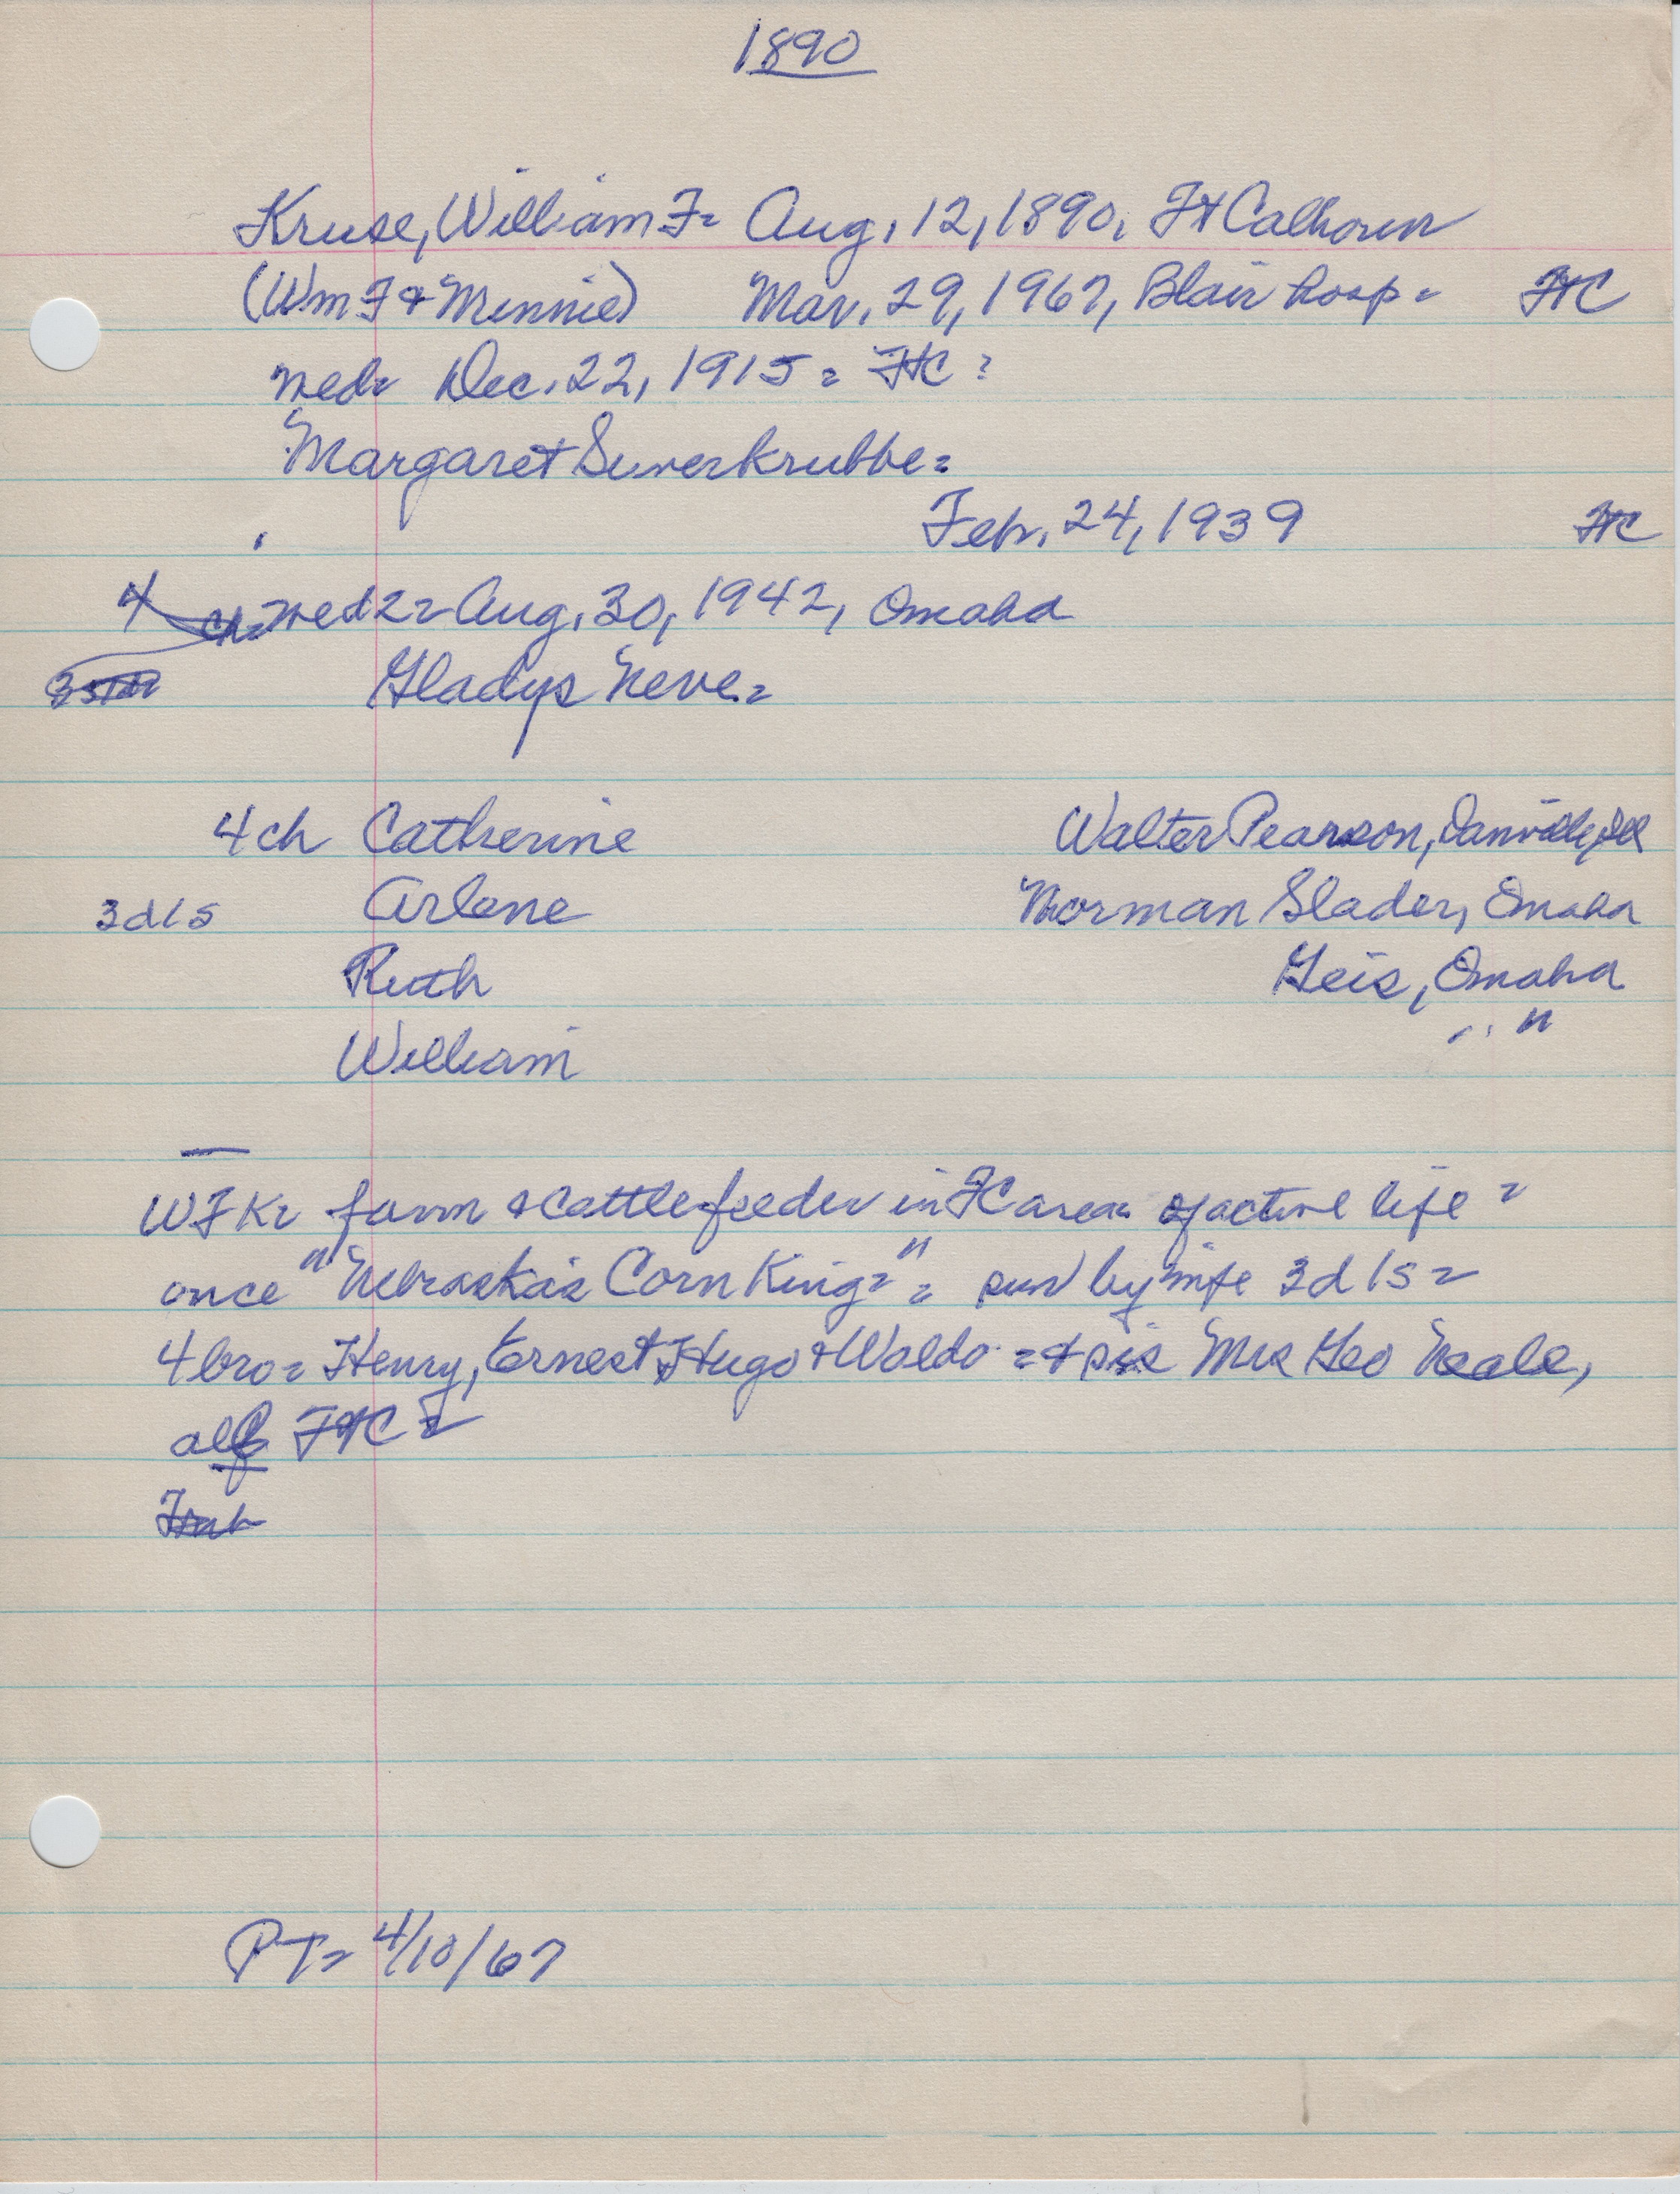 1890
Kruse, William F= Aug, 12, 1890, Ft Calhoun
(Wm F & Minnie) Mar, 29, 1967, Blair hosp = FtC
med= Dec. 22, 1915 = FtC =
Margaret Suverkrubbe =
Feb, 24, 1939 FtC
4 ch= med 2= Aug, 30, 1942, Omaha
Gladys Neve =
4 ch Catherine Walter Pearson, Danville, Ill
3d 1s Arlene Norman Slader, Omaha
Ruth Geis, Omaha
William " "
WFK= farm & cattlefeeder in FC area= of active life =
once "Nebraska's Corn King=" = surv by wife 3d 1s =
4 bro= Henry, Ernest, Hugo & Waldo = & sis Mrs Geo Neale,
all FtC =
PT= 4/10/67